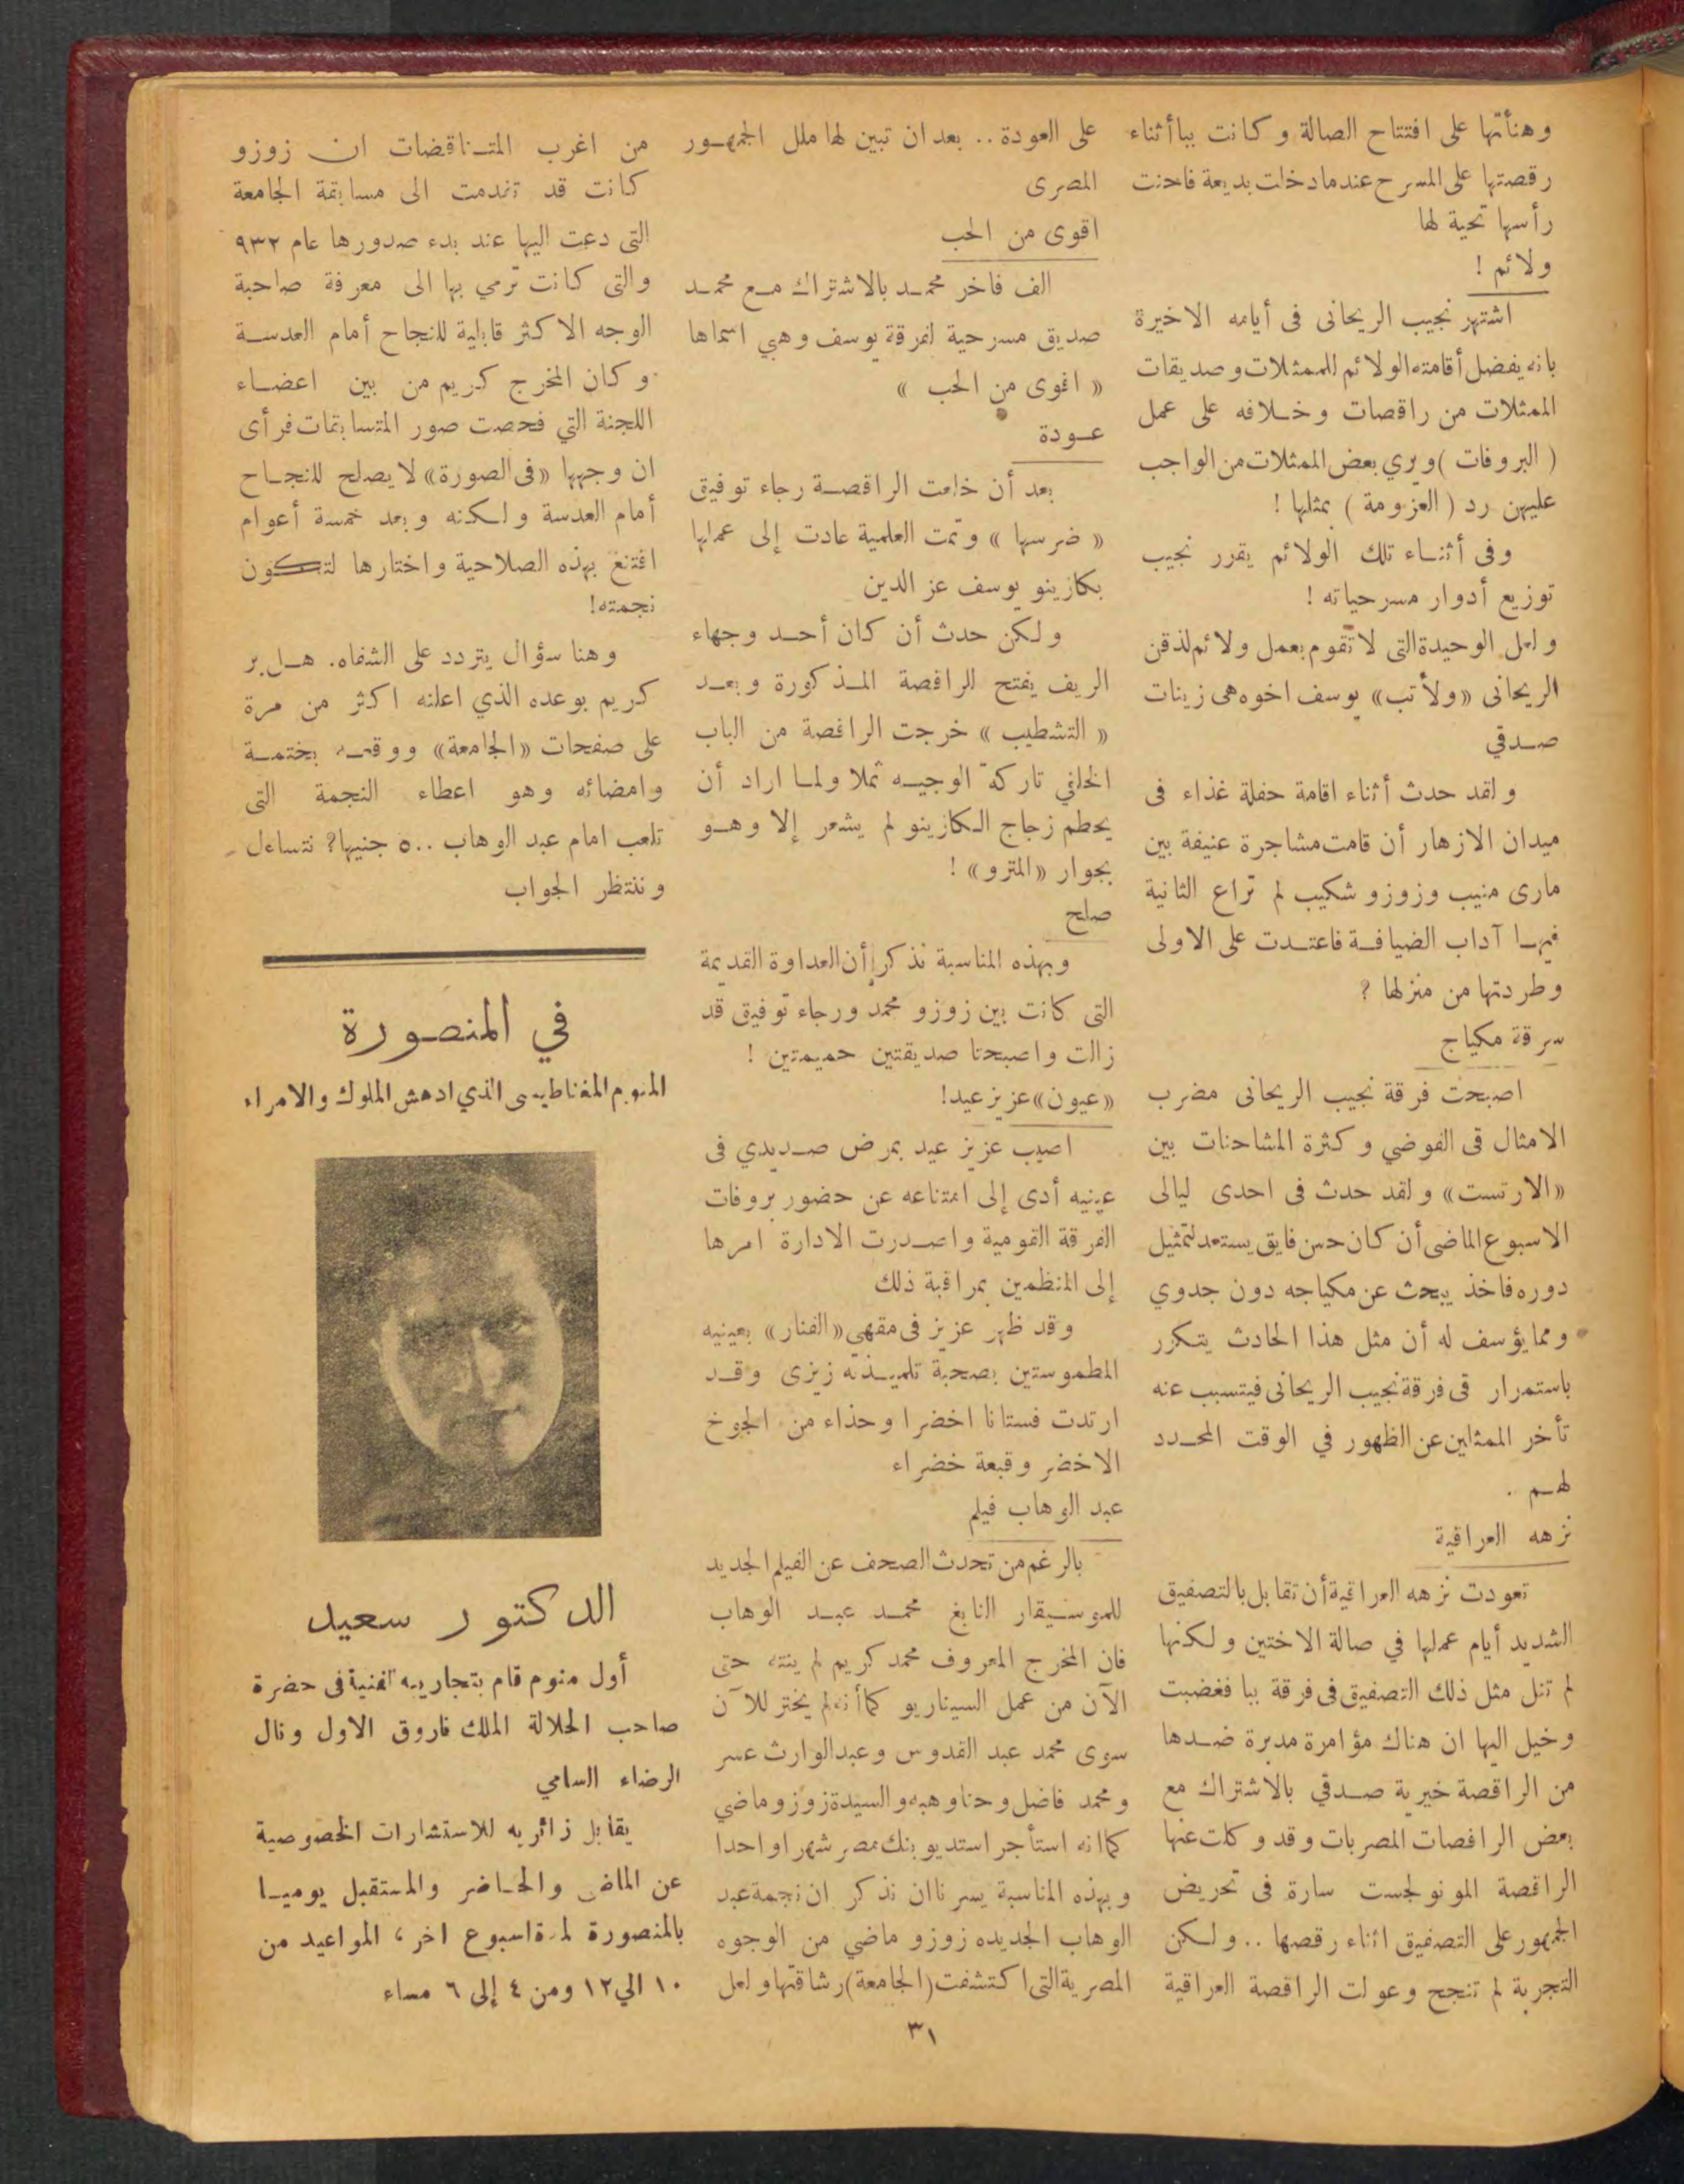 وهنأتها على افتتاح الصالة وكانت ببا أثناء
رقصتها على المسرح عندما دخلت بديعة فاحنت
رأسها تحية لها
ولائم !
اشتهر نجيب الريحانى فى أيامه الاخيرة
بانه يفضل أقامته الولائم للممثلات وصديقات
الممثلات من راقصات وخلافه على عمل
( البروفات ) ويري بعض الممثلات من الواجب
عليهن رد ( العزومة ) بمثلها !
وفى أثناء تلك الولائم يقرر نجيب
توزيع أدوار مسرحياته !
ولعل الوحيدة التى لا تقوم بعمل ولائم لذقن
الريحانى «ولأتب» يوسف اخوه هى زينات
صدقي
ولقد حدث أثناء اقامة حفلة غذاء فى
ميدان الازهار أن قامت مشاجرة عنيفة بين
مارى منيب وزوزو شكيب لم تراع الثانية
فيها آداب الضيافة فاعتدت على الاولى
وطردتها من منزلها ؟
سرقة مكياج
اصبحت فرقة نجيب الريحانى مضرب
الامثال فى الفوضي وكثرة المشاحنات بين
«الارتست» ولقد حدث فى احدى ليالى
الاسبوع الماضى أن كان حسن فايق يستعد لتمثيل
دوره فاخذ يبحث عن مكياجه دون جدوي
ومما يؤسف له أن مثل هذا الحادث يتكرر
باستمرار فى فرقة نجيب الريحانى فيتسبب عنه
تأخر الممثلين عن الظهور في الوقت المحدد
لهم .
نزهه العراقية
تعودت نزهه العراقية أن تقابل بالتصفيق
الشديد أيام عملها في صالة الاختين ولكنها
لم تنل مثل ذلك التصفيق فى فرقة ببا فغضبت
وخيل اليها ان هناك مؤامرة مدبرة ضدها
من الراقصة خيرية صدقي بالاشتراك مع
بعض الراقصات المصريات وقد وكلت عنها
الراقصة المونولجست سارة فى تحريض
الجمهور على التصفيق اثناء رقصها .. ولكن
التجربة لم تنجح وعولت الراقصة العراقية
على العودة .. بعد ان تبين لها ملل الجمهور
المصرى
اقوى من الحب
الف فاخر محمد بالاشتراك مع محمد
صديق مسرحية لفرقة يوسف وهبي اسماها
« اقوى من الحب »
عودة
بعد أن خلعت الراقصة رجاء توفيق
« ضرسها » وتمت العلمية عادت إلى عملها
بكازينو يوسف عز الدين
ولكن حدث أن كان أحد وجهاء
الريف يفتح للراقصة المذكورة وبعد
« التشطيب » خرجت الراقصة من الباب
الخلفي تاركة الوجيه ثملا ولما اراد أن
يحطم زجاج الكازينو لم يشعر إلا وهو
بجوار «المترو» !
صلح
وبهذه المناسبة نذكر أن العداوة القديمة
التى كانت بين زوزو محمد ورجاء توفيق قد
زالت واصبحتا صديقتين حميمتين !
«عيون» عزيز عيد!
اصيب عزيز عيد بمرض صديدي فى
عينيه أدى إلى امتناعه عن حضور بروفات
الفرقة القومية واصدرت الادارة امرها
إلى المنظمين بمراقبة ذلك
وقد ظهر عزيز فى مقهي «الفنار» بعينيه
المطموستين بصحبة تلميذته زيزى وقد
ارتدت فستانا اخضرا وحذاء من الجوخ
الاخضر وقبعة خضراء
عبد الوهاب فيلم
بالرغم من تحدث الصحف عن الفيلم الجديد
للموسيقار النابغ محمد عبد الوهاب
فان المخرج المعروف محمد كريم لم ينته حتى
الآن من عمل السيناريو كما أنه لم يختر للآن
سوى محمد عبد القدوس وعبدالوارث عسر
ومحمد فاضل وحنا وهبه والسيدة زوزو ماضي
كما انه استأجر استديو بنك مصر شهرا واحدا
وبهذه المناسبة يسرنا ان نذكر ان نجمة عبد
الوهاب الجديده زوزو ماضي من الوجوه
المصرية التى اكتشفت (الجامعة) رشاقتها ولعل
من اغرب المتناقضات ان زوزو
كانت قد تقدمت الى مسابقة الجامعة
التى دعت اليها عند بدء صدورها عام ٩٣٢
والتى كانت ترمي بها الى معرفة صاحبة
الوجه الاكثر قابلية للنجاح أمام العدسة
وكان المخرج كريم من بين اعضاء
اللجنة التي فحصت صور المتسابقات فرأى
ان وجهها «فى الصورة» لا يصلح للنجاح
أمام العدسة ولكنه وبعد خمسة أعوام
اقتنع بهذه الصلاحية واختارها لتكون
نجمته!
وهنا سؤال يتردد على الشفاه. هل بر
كريم بوعده الذي اعلنه اكثر من مرة
على صفحات «الجامعة» ووقعه بختمة
وامضائه وهو اعطاء النجمة التى
تلعب امام عبد الوهاب ٥٠٠ جنيها؟ نتساءل
وننتظر الجواب
في المنصورة
المنوم المغناطيسى الذي ادهش الملوك والامراء
الدكتور سعيد
أول منوم قام بتجاربيه الفنية فى حضرة
صاحب الجلالة الملك فاروق الاول ونال
الرضاء السامي
يقابل زائريه للاستشارات الخصوصية
عن الماضى والحاضر والمستقبل يوميا
بالمنصورة لمدة اسبوع اخر ، المواعيد من
١٠ الي ١٢ ومن ٤ إلى ٦ مساء
٣١